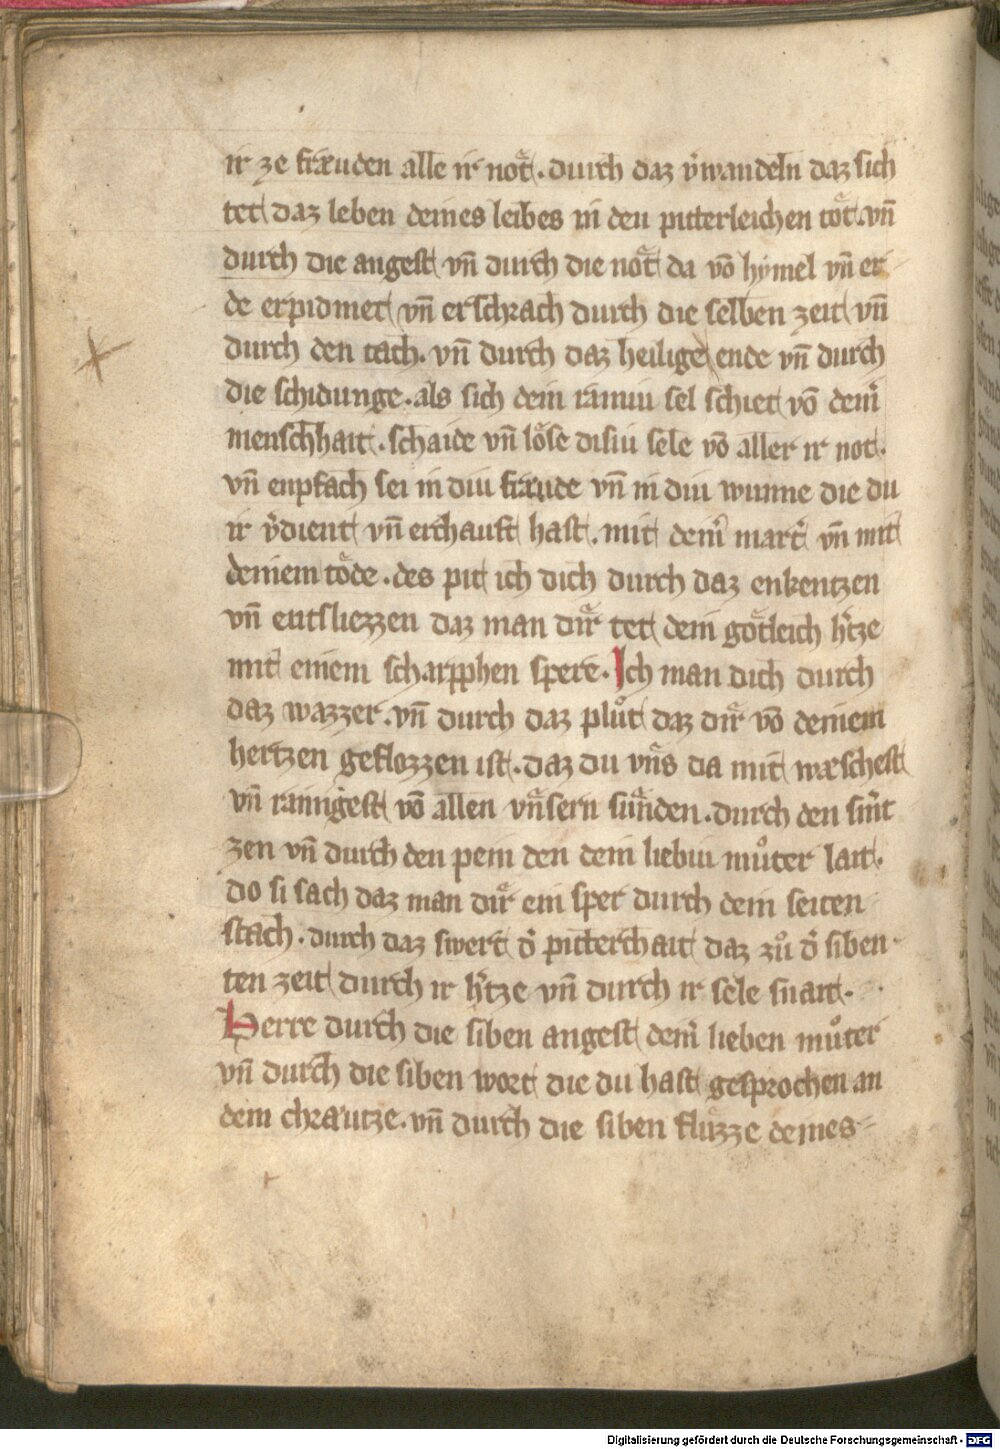 ir ze fræuden alle ir not̄. durch daz v̾wandeln daz sich
tet daz leben deines leibes in den pitterleichen tot. vn̄
durch die angest vn̄ durch die not da vō hymel vn̄ er
de erpidmet vn̄ erschrach durch die selben zeit vn̄
durch den tach. vn̄ durch daz heilige ende vn̄ durch
die schidunge. als sich dein rainiu sel schiet vō dein̾
menschhait. schaide vn̄ löse disiu sele vō aller ir not.
vn̄ enpfach sei in diu fræude vn̄ in diu wunne die du
ir v̾dient vn̄ erchauft hast. mit dein̾ mart̾ vn̄ mit
deinem tode. des pit ich dich durch daz enkentzen
vn̄ entsliezzen daz man dir tet dein götleich h̾tze
mit einem scharpphen spere. Ich man dich durch
daz wazzer. vn̄ durch daz plůt daz dir vō deinem
hertzen geflozzen ist. daz du vns da mit wæschest
vn̄ rainigest vō allen vnsern sunden. durch den sm̾t
zen vn̄ durch den pein den dein liebiu můter lait.
do si sach daz man dir ein sper durch dein seiten
stach. durch daz swert d̾ pitterchait daz zů d̾ siben
ten zeit durch ir h̾tze vn̄ durch ir sele snait.
Herre durch die siben angest dein̾ lieben můter
vn̄ durch die siben wort die du hast gesprochen an
dem chræutze. vn̄ durch die siben fluzze deines
Digitalisierung gefördert durch die Deutsche Forschungsgemeinschaft - DFG